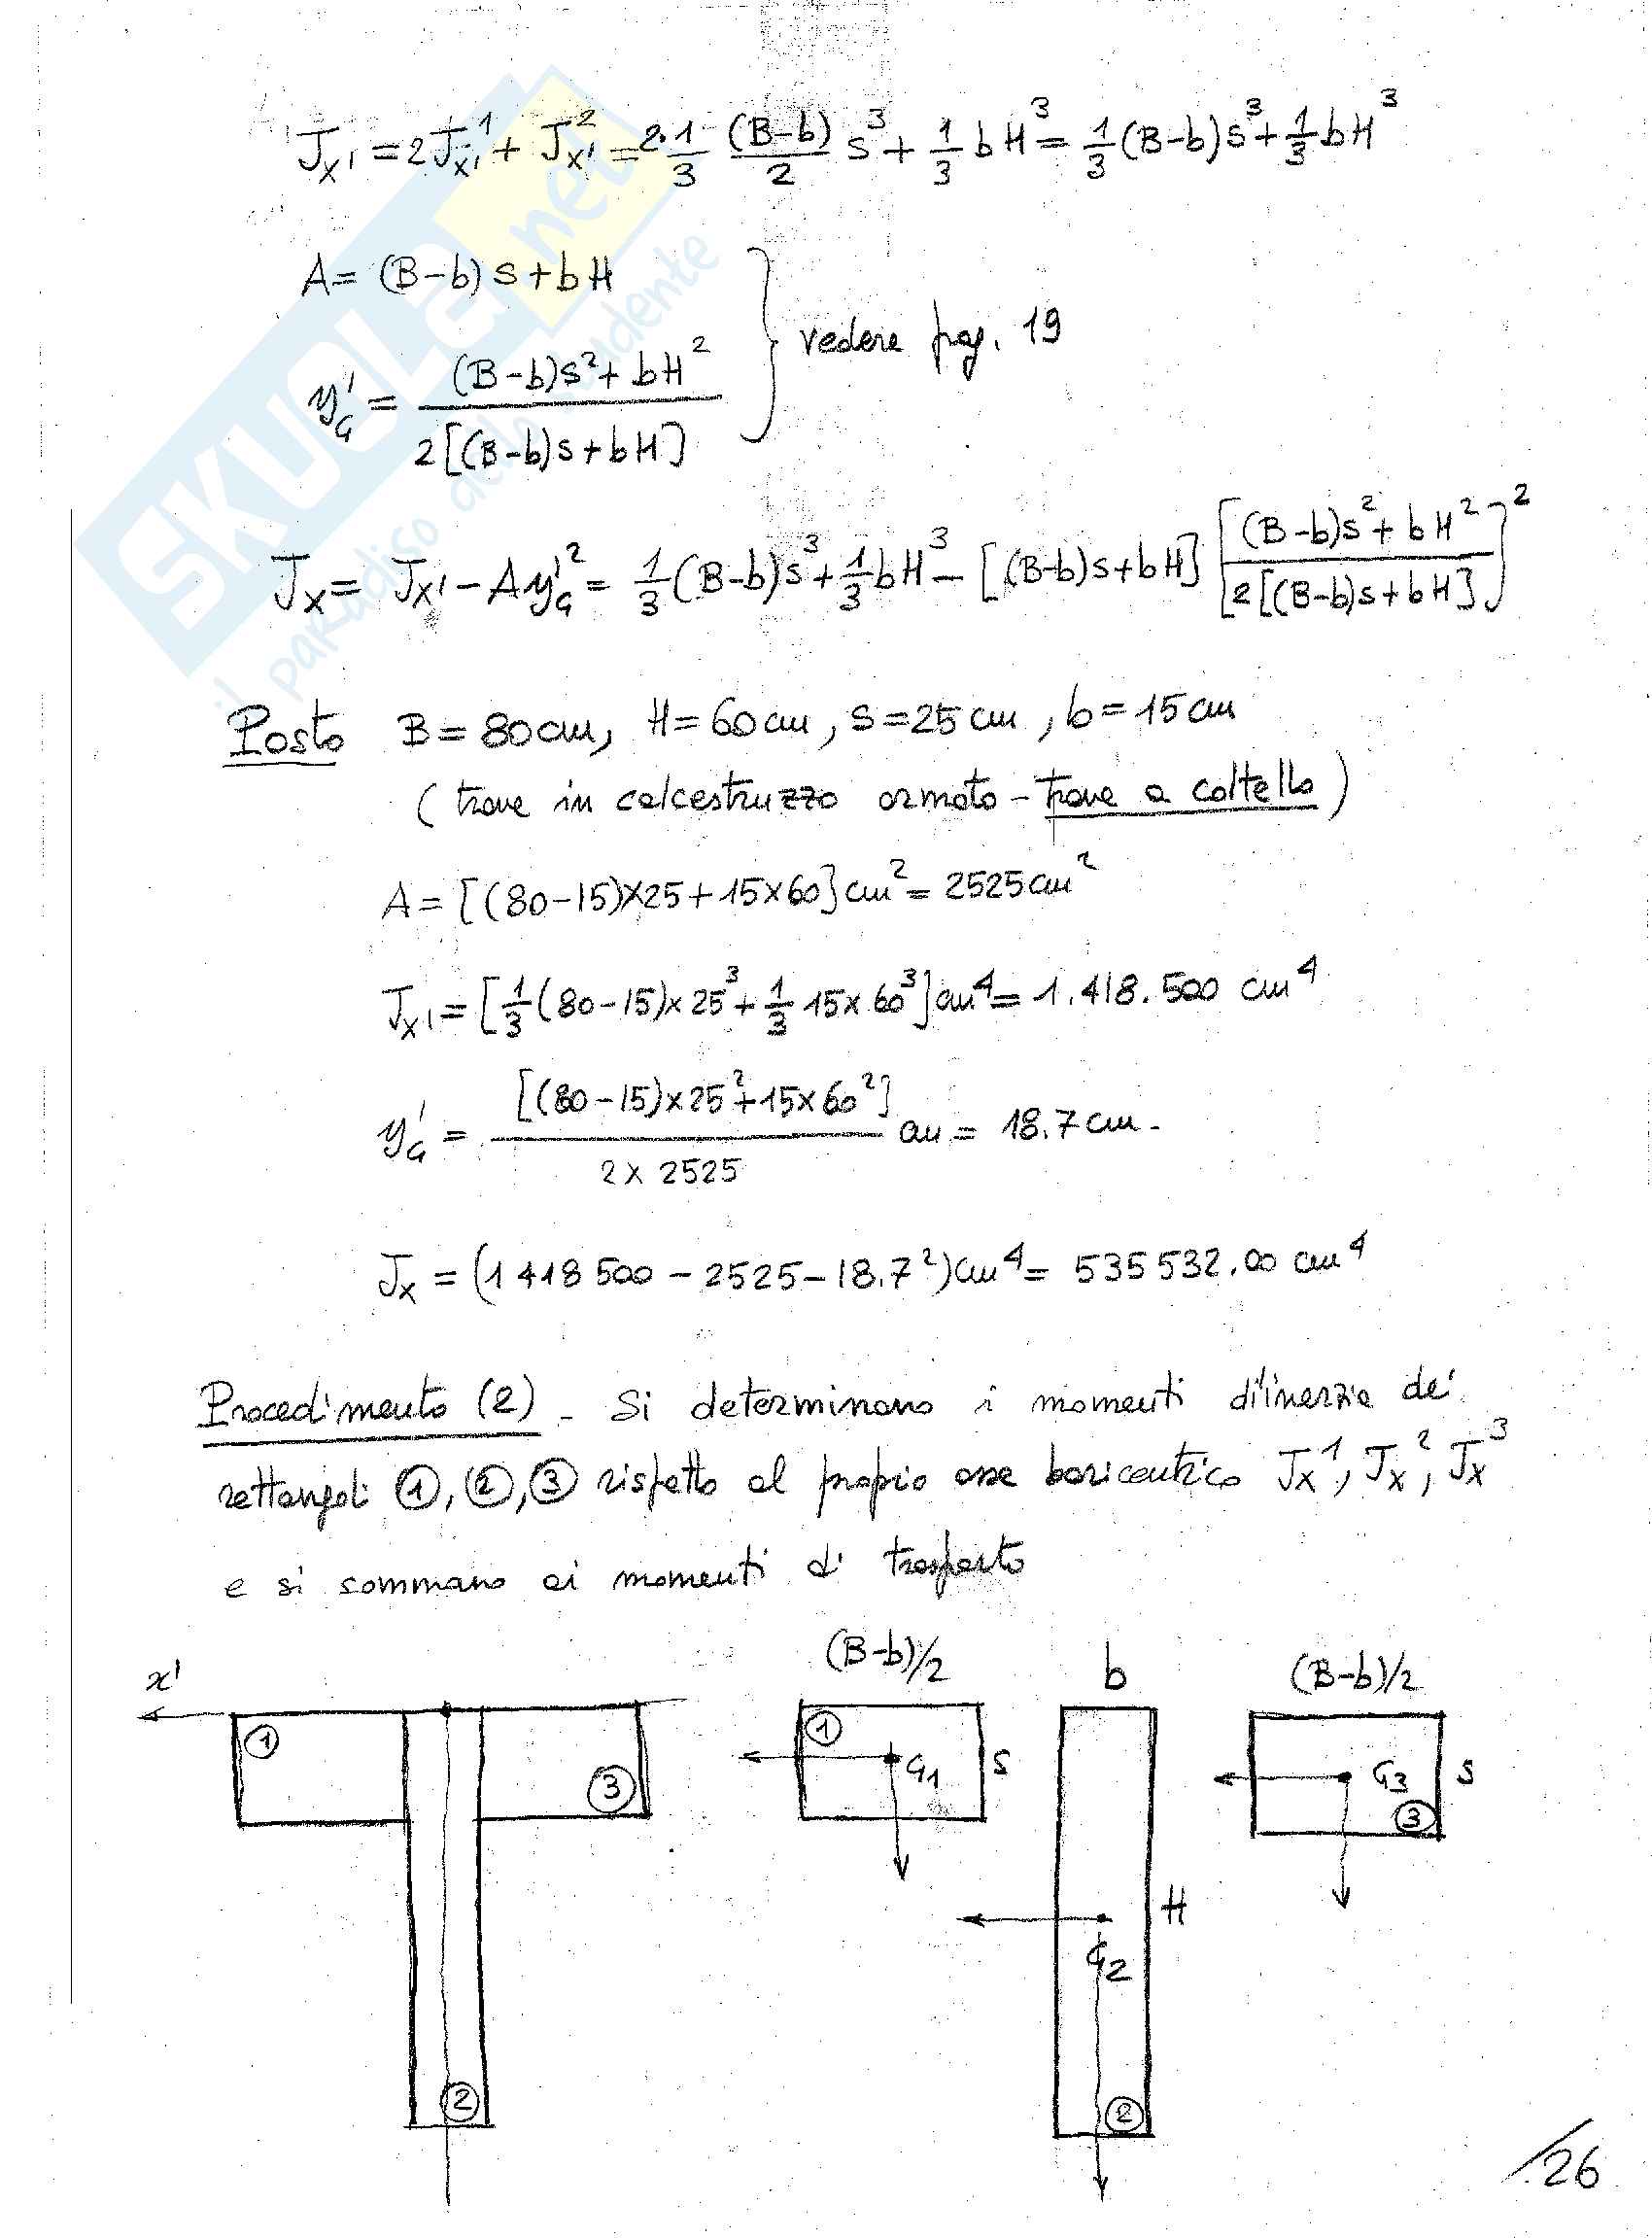 J_x' = 2J_x'^1 + J_x'^2 = 2·1/3 (B-b)/2 s^3 + 1/3 bH^3 = 1/3 (B-b)s^3 + 1/3 bH^3
A = (B-b)s + bH
vedere pag. 19
y'_G = (B-b)s^2 + bH^2 / 2[(B-b)s + bH]
J_x = J_x' - A y'_G^2 = 1/3 (B-b)s^3 + 1/3 bH^3 - [(B-b)s + bH] [(B-b)s^2 + bH^2 / 2[(B-b)s + bH]]^2
Posto B = 80 cm, H = 60 cm, s = 25 cm, b = 15 cm
(trave in calcestruzzo armato - trave a coltello)
A = [(80-15)×25 + 15×60] cm^2 = 2525 cm^2
J_x' = [1/3 (80-15)×25^3 + 1/3 15×60^3] cm^4 = 1.418.500 cm^4
y'_G = [(80-15)×25^2 + 15×60^2] / 2×2525 cm = 18.7 cm.
J_x = (1418500 - 2525 - 18.7^2) cm^4 = 535532.00 cm^4
Procedimento (2) - Si determinano i momenti d'inerzia dei
rettangoli ①, ②, ③ rispetto al proprio asse baricentrico J_x^1, J_x^2, J_x^3
e si sommano ai momenti di trasporto
x'
(B-b)/2
b
(B-b)/2
①
③
②
①
G1
s
H
G2
②
G3
s
③
26
SKUOLA.net
il paradiso dello studente